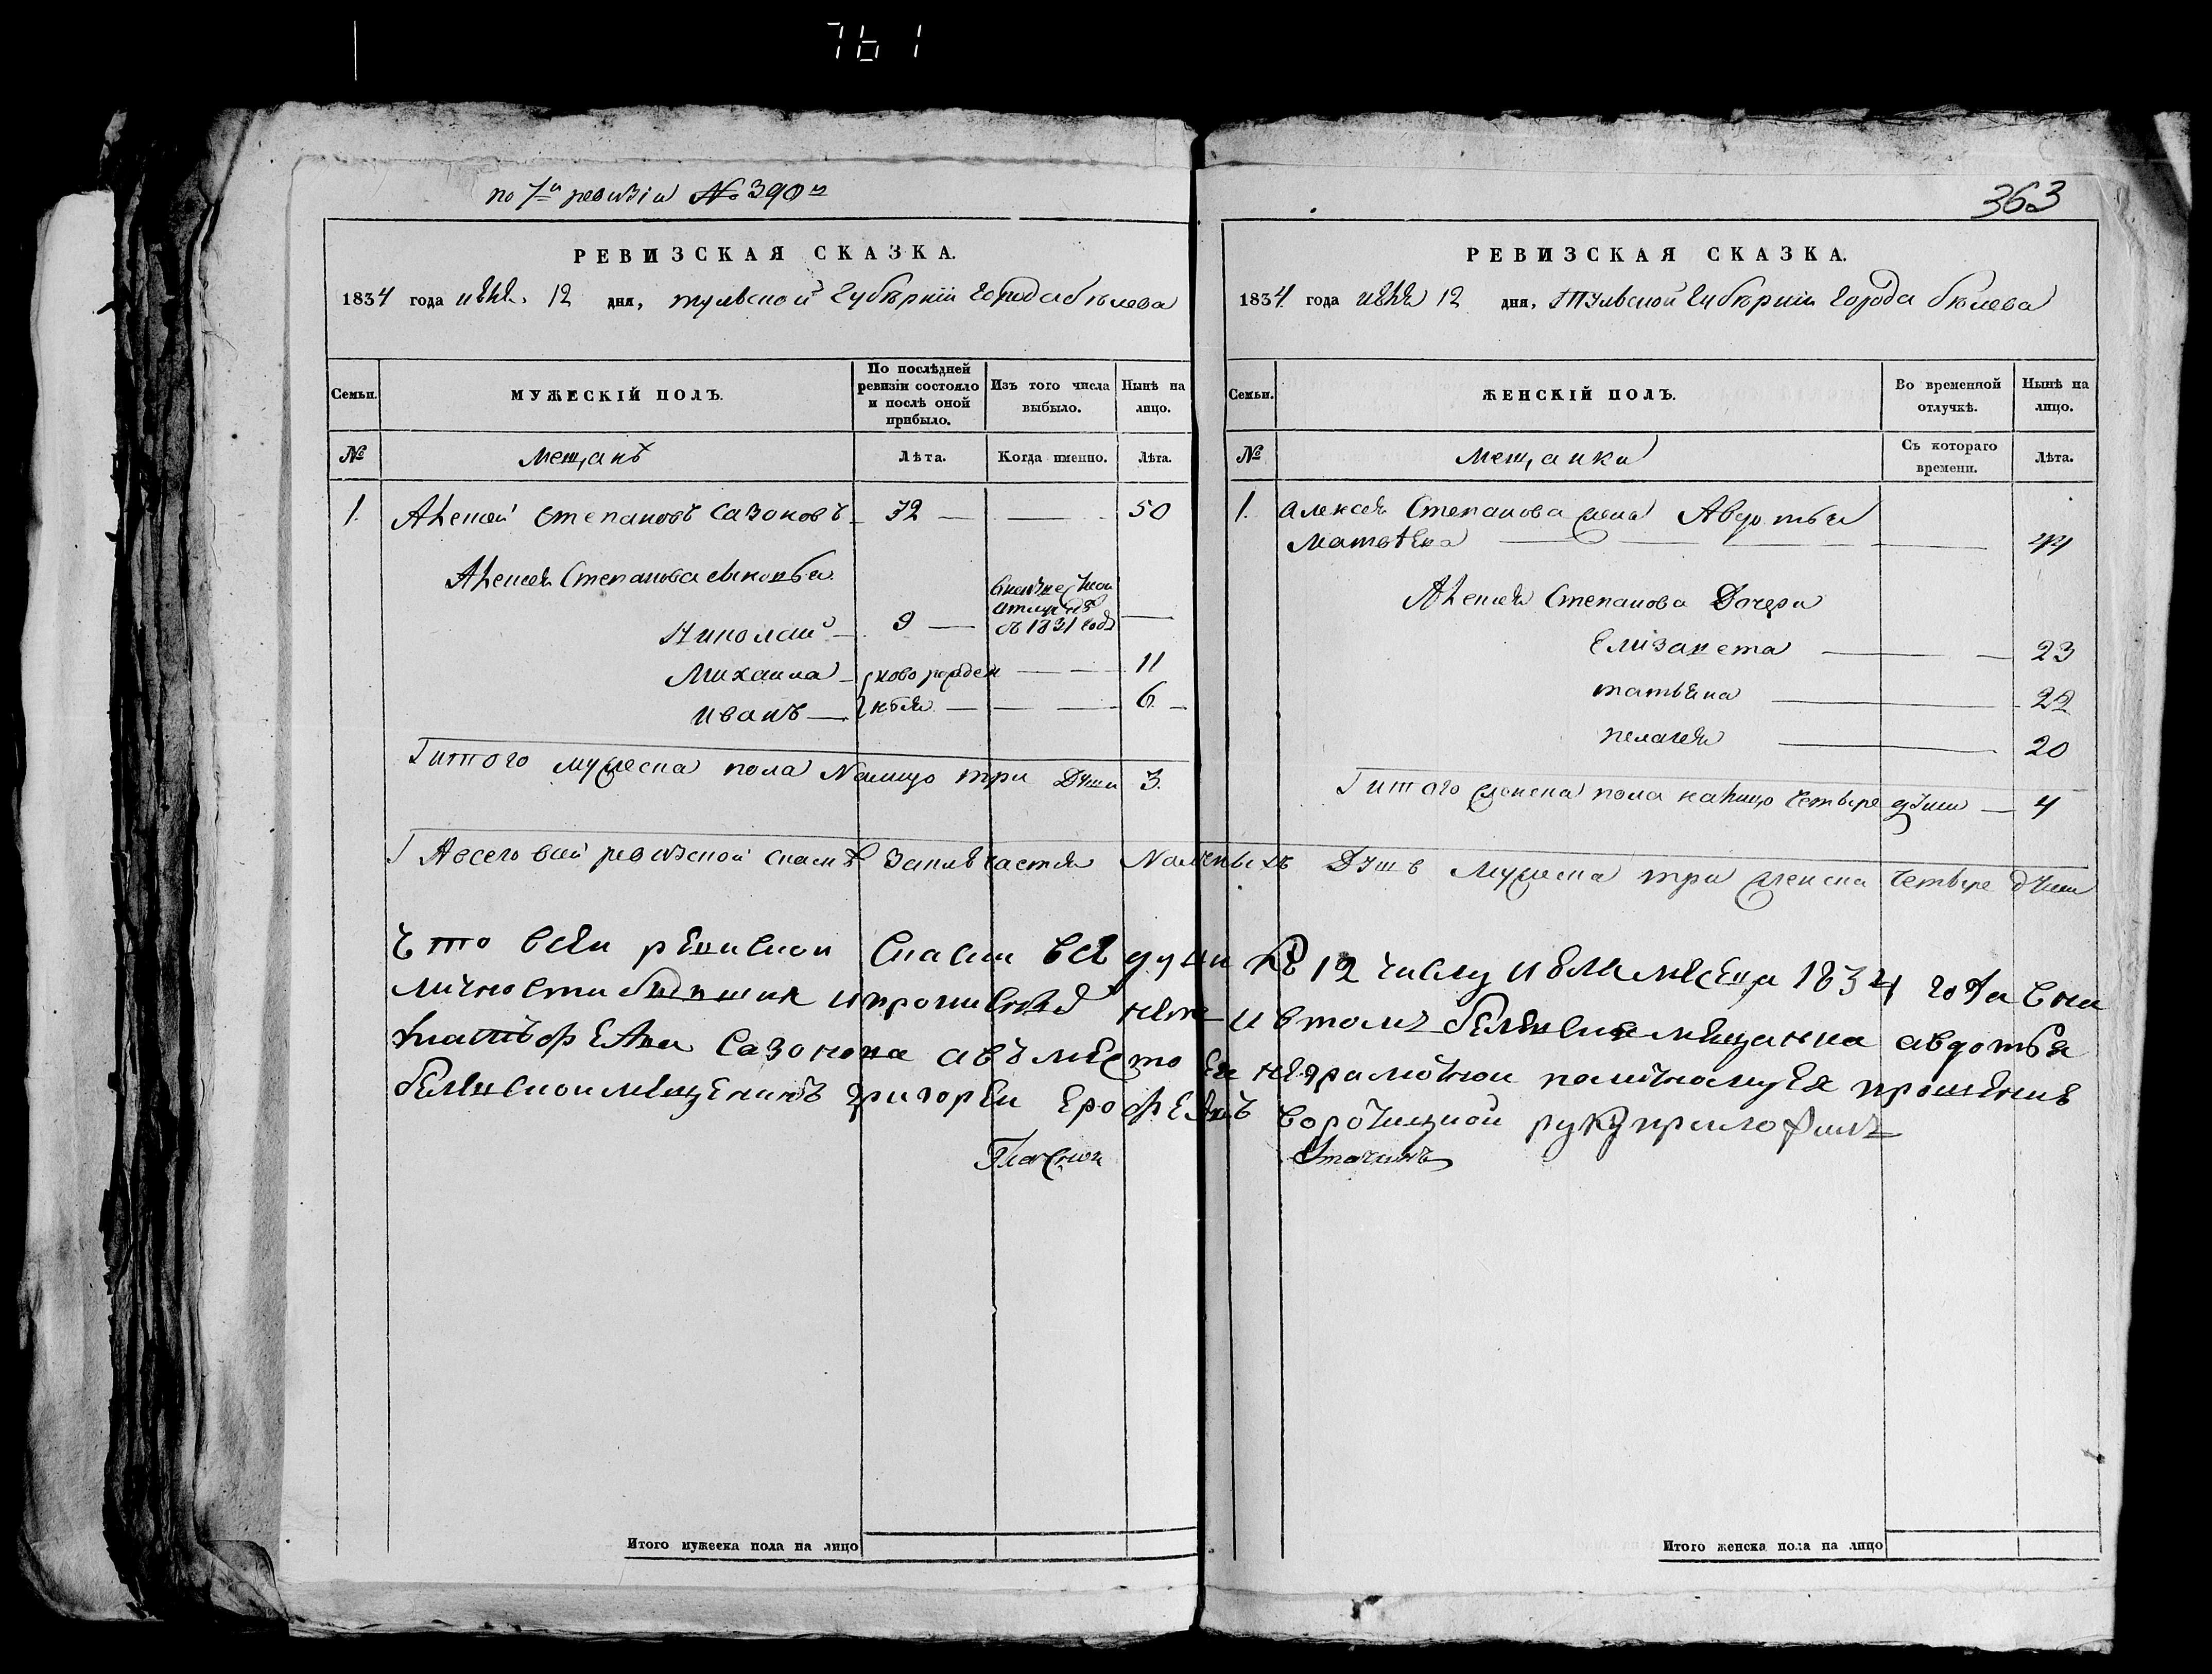 761
по 7й ревизіи № 390й
РЕВИЗСКАЯ СКАЗКА.
1834 года июня 12 дня, тульской губѣрніи города бѣлева
Семьи.
МУЖЕСКІЙ ПОЛЪ.
По послѣдней ревизіи состояло и послѣ оной прибыло.
Изъ того числа выбыло.
Нынѣ на лицо.
№
мещанѣ
Лѣта.
Когда именно.
Лѣта.
1. Алексей степановъ сазоновъ 32 — — 50
Алексея Степанова сыновья
Николай — 9 — отлучкѣ съ 1831 года —
Михаила — новорожден — 11
иванъ — ныя — — 6
итого мужеска пола Налицо три Души 3.
363
РЕВИЗСКАЯ СКАЗКА.
1834 года июня 12 дня, Тульской губѣрніи города бѣлева
Семьи.
ЖЕНСКІЙ ПОЛЪ.
Во временной отлучкѣ.
Нынѣ на лицо.
№
мещанки
Съ котораго времени.
Лѣта.
1. алексея Степанова жена Авдотья
Матвѣева — 44
Алексея Степанова Дочери
Елізавета — 23
татьяна — 22
пелагея — 20
итого женска пола налицо четыре души — 4
Авсего всей ревизской сказкѣ Заключается Наличныхъ Душъ Мужеска три женска четыре души
что всеи ревиской скаски всѣ души къ 12 числу июня месеца 1834 года в на
личности и протисныхъ нет и втомъ белевская мещанка авдотья
Сазонова авъместо ея неграмотнои поличному ея прошению
белевскои мещенинъ григореи ерофеевъ сорочицкой руку приложилъ
Гласнои
Итого мужеска пола на лицо
Итого женска пола на лицо